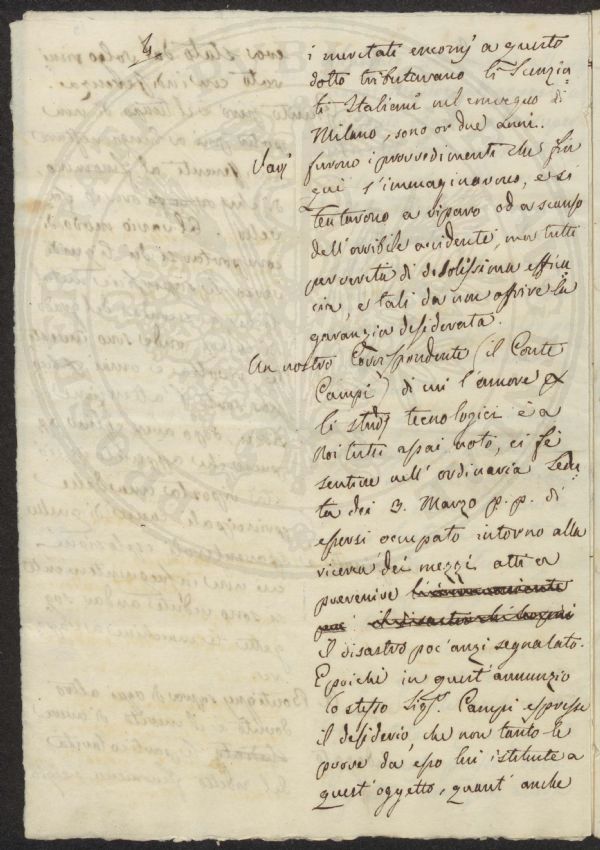 4.
i meritati encomj a questo
dotto tributavano li Scenzia-
ti Italiani nel convegno di
Milano, sono or due anni.
Varj
furono i provvedimenti che fin
quì s'immaginavono, e si
tentavono a riparo od a scanso
dell'orribile accidente, ma tutti
per verità di debolissima effica
cia, e tali da non offrire la
garanzia desiderata.
Un nostro Corrispondente (il Conte
Campi) di cui l'amore
li studj tecnologici è a
noi tutti assai noto, ci fè
sentire nell'ordinaria Sedu
ta dei 3. Marzo p. p. di
essersi occupato intorno alla
ricerca dei mezzi atti a
prevenire
il disastro
il disastro poc'anzi segnalato.
E poichè in quest'annunzio
lo stesso Sigr. Campi espresse
il desiderio, che non tanto le
prove da esso lui istituite a
quest'oggetto, quant'anche